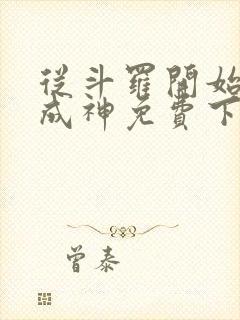 從斗羅開始
成神免費下
曾泰